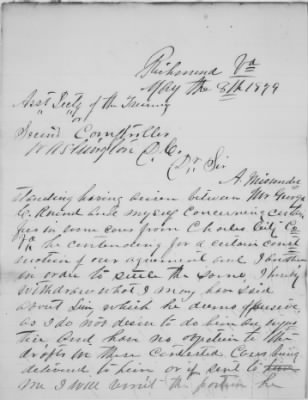 Richmond Va
May the 8th 1879
Asst Secty of the Treasury
or
Second Comptroller
Washington D.C.
Dr Sir
A Misunder
standing having arisen between Mr George
C. Round and myself concerning
in some cases from Charles City Co
Va he contending for a certain const
ruction of our agreement and I
in order to settle the same, I hereby
withdraw what I may have said
about him which he deems offensive,
as I do not desire to do him an injus
tice and have no objection to the
drafts in these Contested Cases being
delivered to him or if sent to
me I will remit the portion he